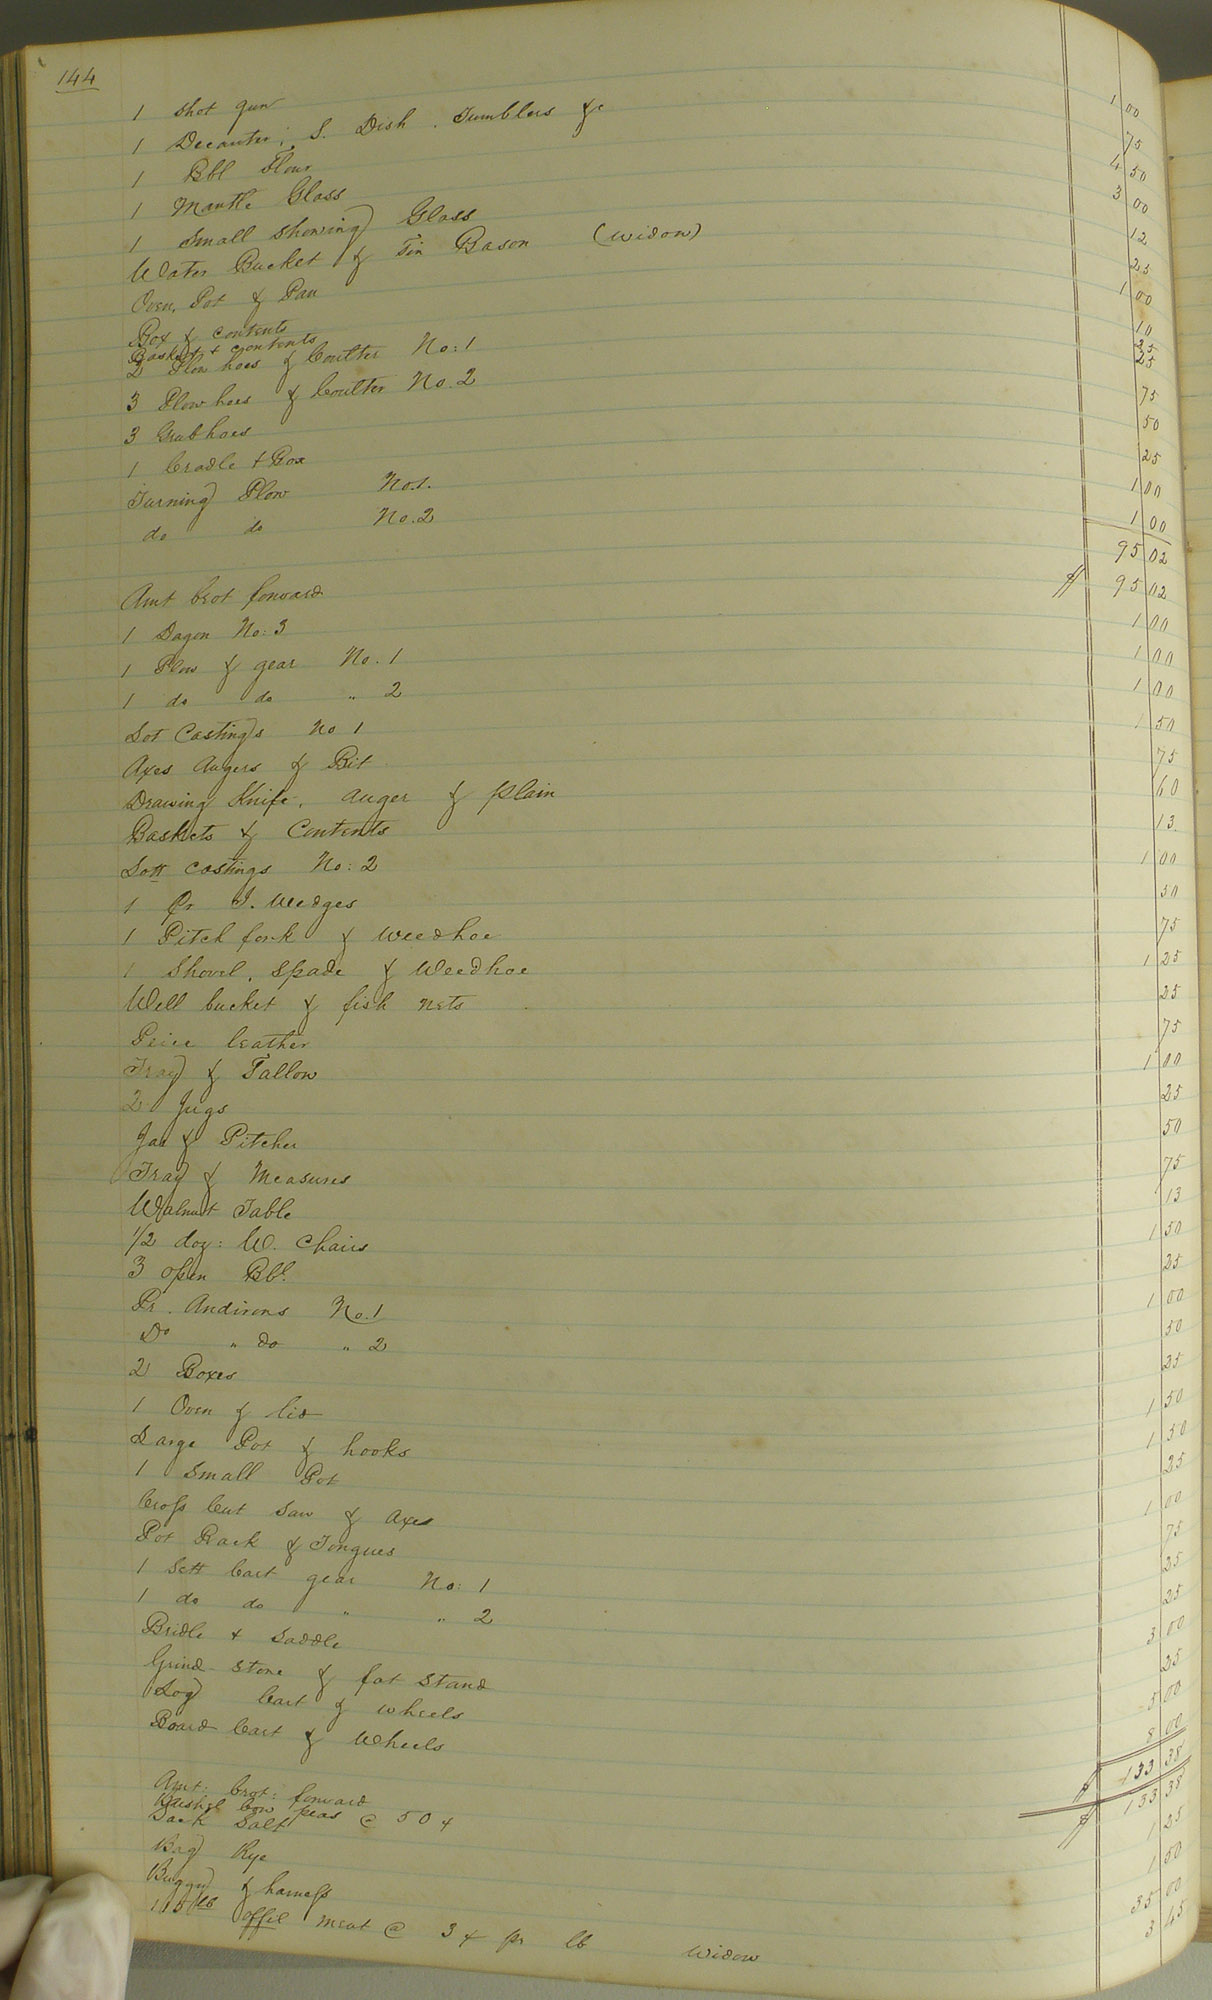 144
1 Shot gun 1 00
1 Decanter, S. Dish. Tumblers &c 75
1 Bbl Flour 4 50
1 Mantle Glass 3 00
1 Small Showing Glass 12
Water Bucket & Tin Bason (Widow) 25
Oven, Pot & Pan 1 00
Box & contents 10
Basket + contents 25
2 Plow hoes & Coulter No: 1 25
3 Plow hoes & Coulter No. 2 75
3 Grub hoes 50
1 Cradle + Box 25
Turning Plow No.1. 1 00
do do No. 2 1 00
95 02
Amt brot forward $ 95 02
1 Dagon No: 3 1 00
1 Plow & gear No. 1 1 00
1 do do " 2 1 00
Lot Castings No 1 1 50
Axes Augers & Bit 75
Drawing Knife, auger & plain 60
Baskets & Contents 13
Lott castings No: 2 1 00
1 Pr I. Wedges 50
1 Pitch fork & weedhoe 75
1 Shovel, Spade & Weedhoe 1 25
Well bucket & fish nets 25
Peice leather 75
Tray & Tallow 1 00
2 Jugs 25
Jar & Pitcher 50
Tray & Measures 75
Walnut Table 13
1/2 doz: W. Chairs 1 50
3 open Bbl. 25
Pr. Andirons No. 1 1 00
Do " do " 2 50
2 Boxes 25
1 Oven & lid 1 50
Large Pot & hooks 1 50
1 Small Pot 25
Cross Cut Saw & Axes 1 00
Pot Rack & Tongues 75
1 Sett Cart gear No: 1 25
1 do do " " 2 25
Bridle + Saddle 3 00
Grind Stone & fat Stand 25
Log Cart & wheels 5 00
Board Cart & Wheels 8 00
$ 133 38
Amt: brot: forward $ 133 38
Bushel Cow peas @ 50 ¢
Sack Salt 1 25
Bag Rye 1 50
Buggy & harness 35 00
115 lb offil meat @ 3 ¢ pr lb Widow 3 45